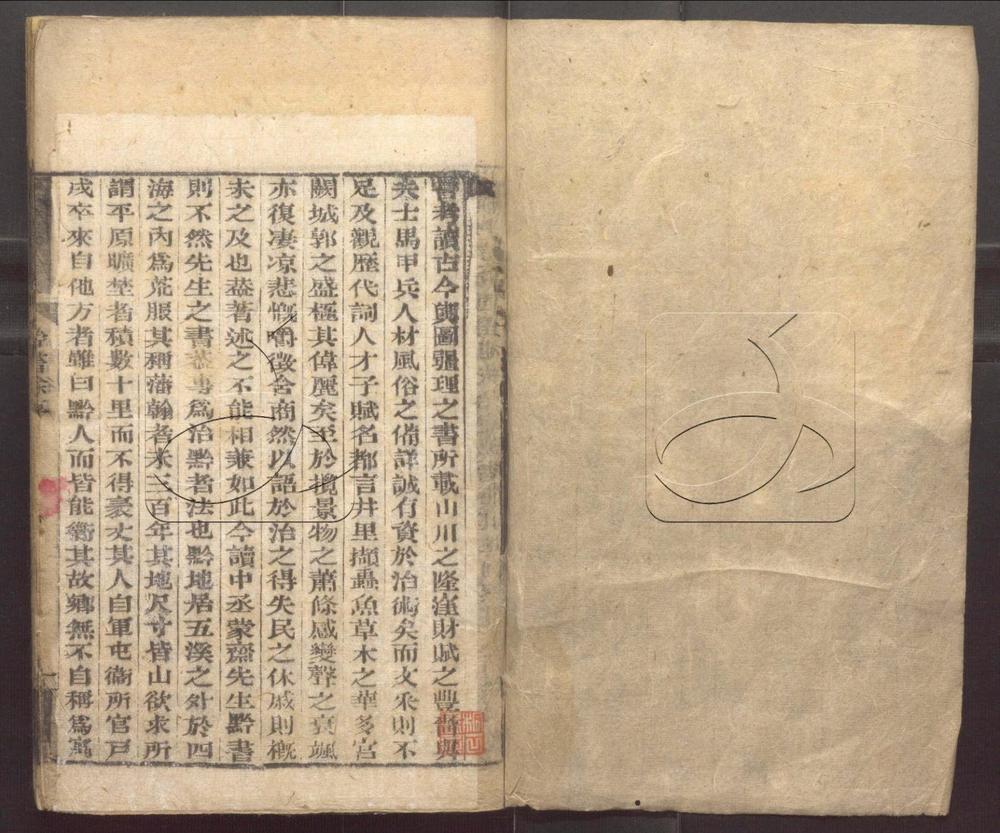 嘗考讀古今輿圖疆理之書所載山川之隆窪財賦之豐嗇與
夫士馬甲兵人材風俗之備詳誠有資於治術矣而文采則不
足及觀歷代詞人才子賦名都言井里擷蟲魚草木之華多宮
闕城郭之盛極其偉麗矣至於攬景物之蕭條感變聲之哀颯
亦復凄凉悲慨嚼徵含商然以語於治之得失民之休戚則概
未之及也葢著述之不能相兼如此今讀中丞蒙齋先生黔書
則不然先生之書葢專爲治黔者法也黔地居五溪之外於四
海之內爲荒服其稱藩翰者未三百年其地尺寸皆山欲求所
謂平原曠埜者積數十里而不得豪丈其人自軍屯衞所官戸
戍卒來自他方者雖曰黔人而皆能衞其故鄉無不自稱爲寓